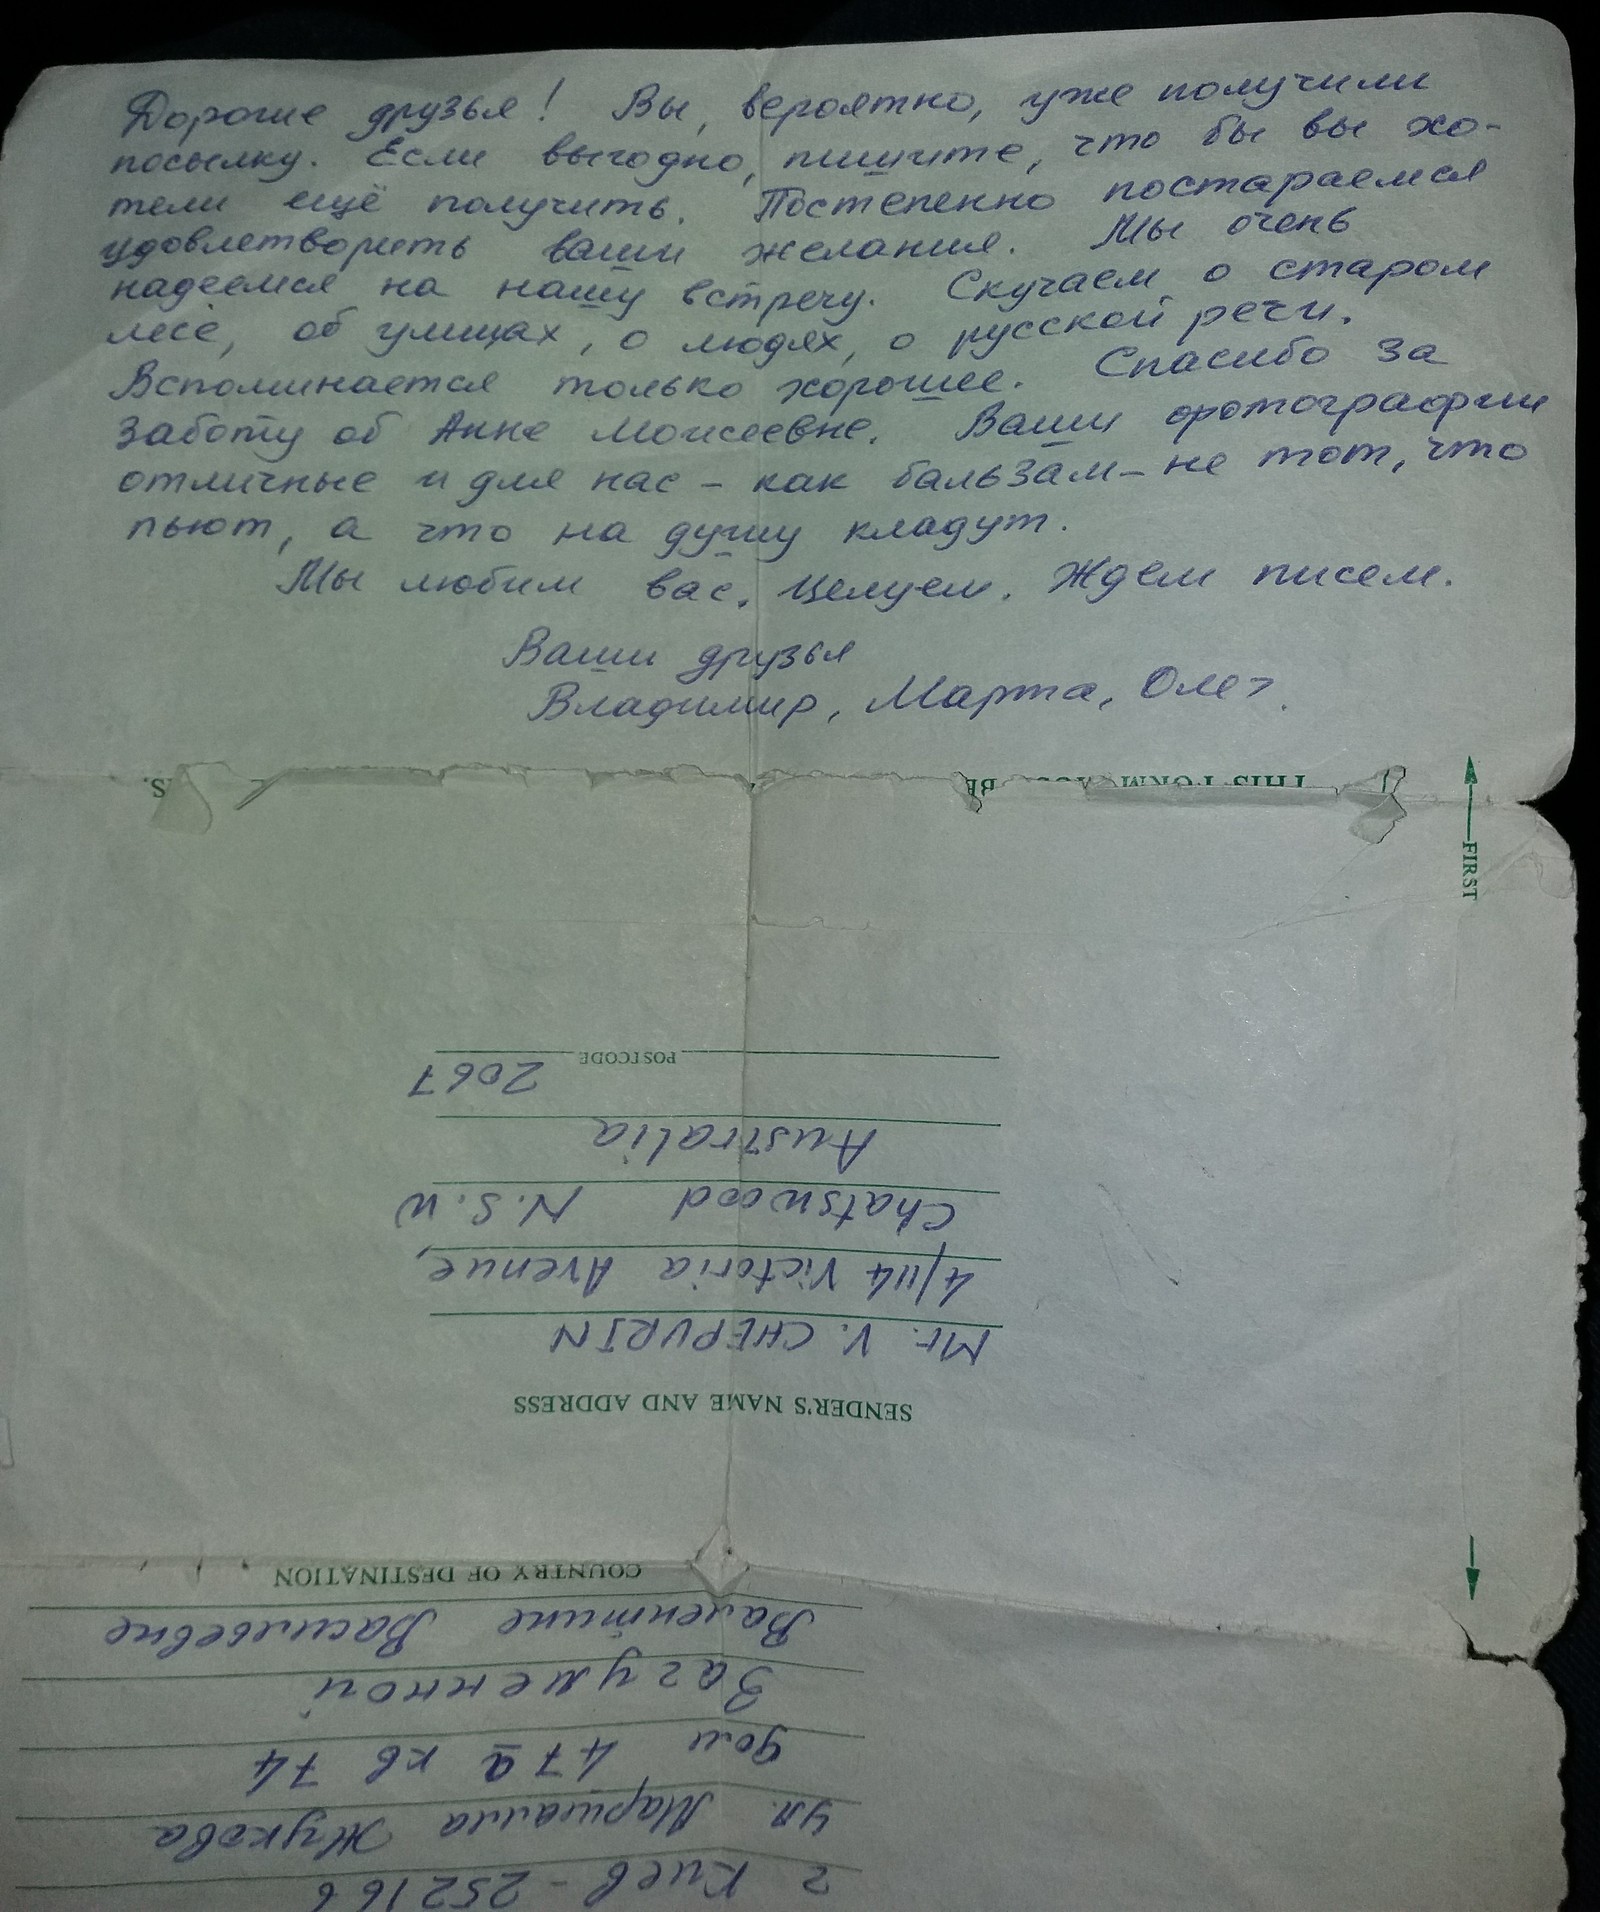 Дорогие друзья! Вы, вероятно, уже получили
посылку. Если выгодно, пишите, что бы вы хо-
тели ещё получить. Постепенно постараемся
удовлетворить ваши желания. Мы очень
надеемся на нашу встречу. Скучаем о старом
лесе, об улицах, о людях, о русской речи.
Вспоминается только хорошее. Спасибо за
заботу об Анне Моисеевне. Ваши фотографии
отличные и для нас – как бальзам – не тот, что
пьют, а что на душу кладут.
Мы любим вас. Целуем. Ждем писем.
Ваши друзья
Владимир, Марта, Олег.
THIS FORM BE
FIRST
SENDER'S NAME AND ADDRESS
Mr. V. CHEPURIN
4/114 Victoria Avenue,
Chatswood N.S.W
Australia
2067
POSTCODE
г Киев - 252166
ул. Маршалла Жукова
дом 47а кв 74
Загуменной
Валентине Васильевне
COUNTRY OF DESTINATION